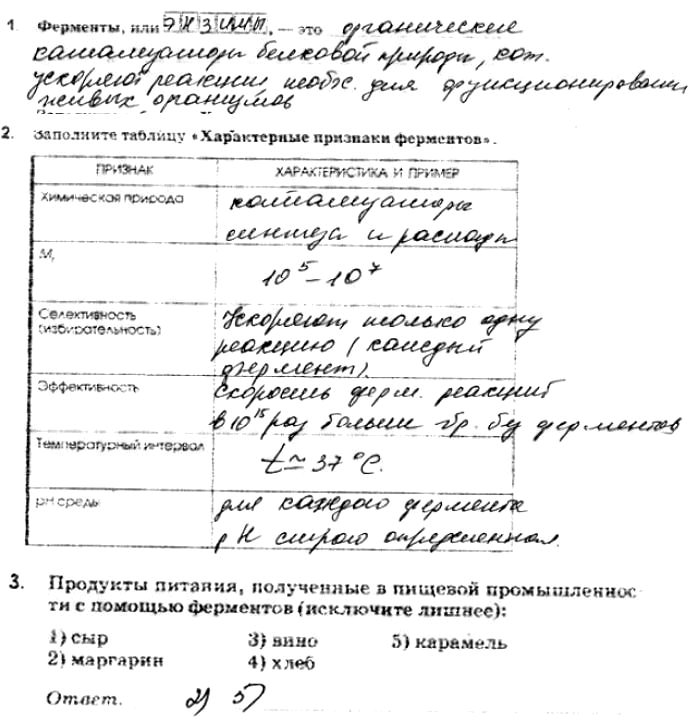 1. Ферменты, или ЭНЗИМЫ, — это органические
катализаторы белковой природы, кот.
ускоряют реакции, необх. для функционирования
живых организмов
2. Заполните таблицу «Характерные признаки ферментов».
ПРИЗНАК ХАРАКТЕРИСТИКА И ПРИМЕР
Химическая природа катализаторы
синтеза и распада
Mr
10⁵ – 10⁷
Селективность Ускоряют только одну
(избирательность) реакцию (каждый
фермент).
Эффективность Скорость ферм. реакций
в 10¹⁵ раз больше др. без ферментов
Температурный интервал t ≃ 37 °C.
pH среды для каждого фермента
pH строго определенная.
3. Продукты питания, полученные в пищевой промышленнос
ти с помощью ферментов (исключите лишнее):
1) сыр 3) вино 5) карамель
2) маргарин 4) хлеб
Ответ. 2) 5)